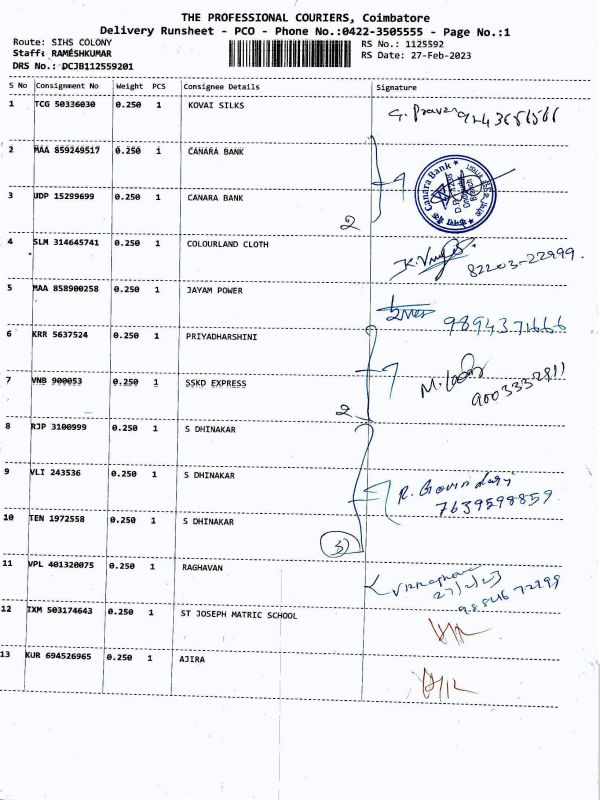 THE PROFESSIONAL COURIERS, Coimbatore
Delivery Runsheet - PCO - Phone No.:0422-3505555 - Page No.:1
Route: SIHS COLONY
RS No.: 1125592
Staff: RAMESHKUMAR
RS Date: 27-Feb-2023
DRS No.: DCJB112559201
S No Consignment No Weight PCS Consignee Details Signature
1 TCG 50336030 0.250 1 KOVAI SILKS
2 MAA 859249517 0.250 1 CANARA BANK
Canara Bank
3 UDP 15299699 0.250 1 CANARA BANK
2
4 SLM 314645741 0.250 1 COLOURLAND CLOTH
82203-22999.
5 MAA 858900258 0.250 1 JAYAM POWER
9894371666
6 KRR 5637524 0.250 1 PRIYADHARSHINI
7 VNB 900053 0.250 1 SSKD EXPRESS
9003332811
2
8 RJP 3100999 0.250 1 S DHINAKAR
9 VLI 243536 0.250 1 S DHINAKAR
R. Govindaraj
7639598859
10 TEN 1972558 0.250 1 S DHINAKAR
3
11 VPL 401320075 0.250 1 RAGHAVAN
27/2/23
98846 72299
12 IXM 503174643 0.250 1 ST JOSEPH MATRIC SCHOOL
13 KUR 694526965 0.250 1 AJIRA